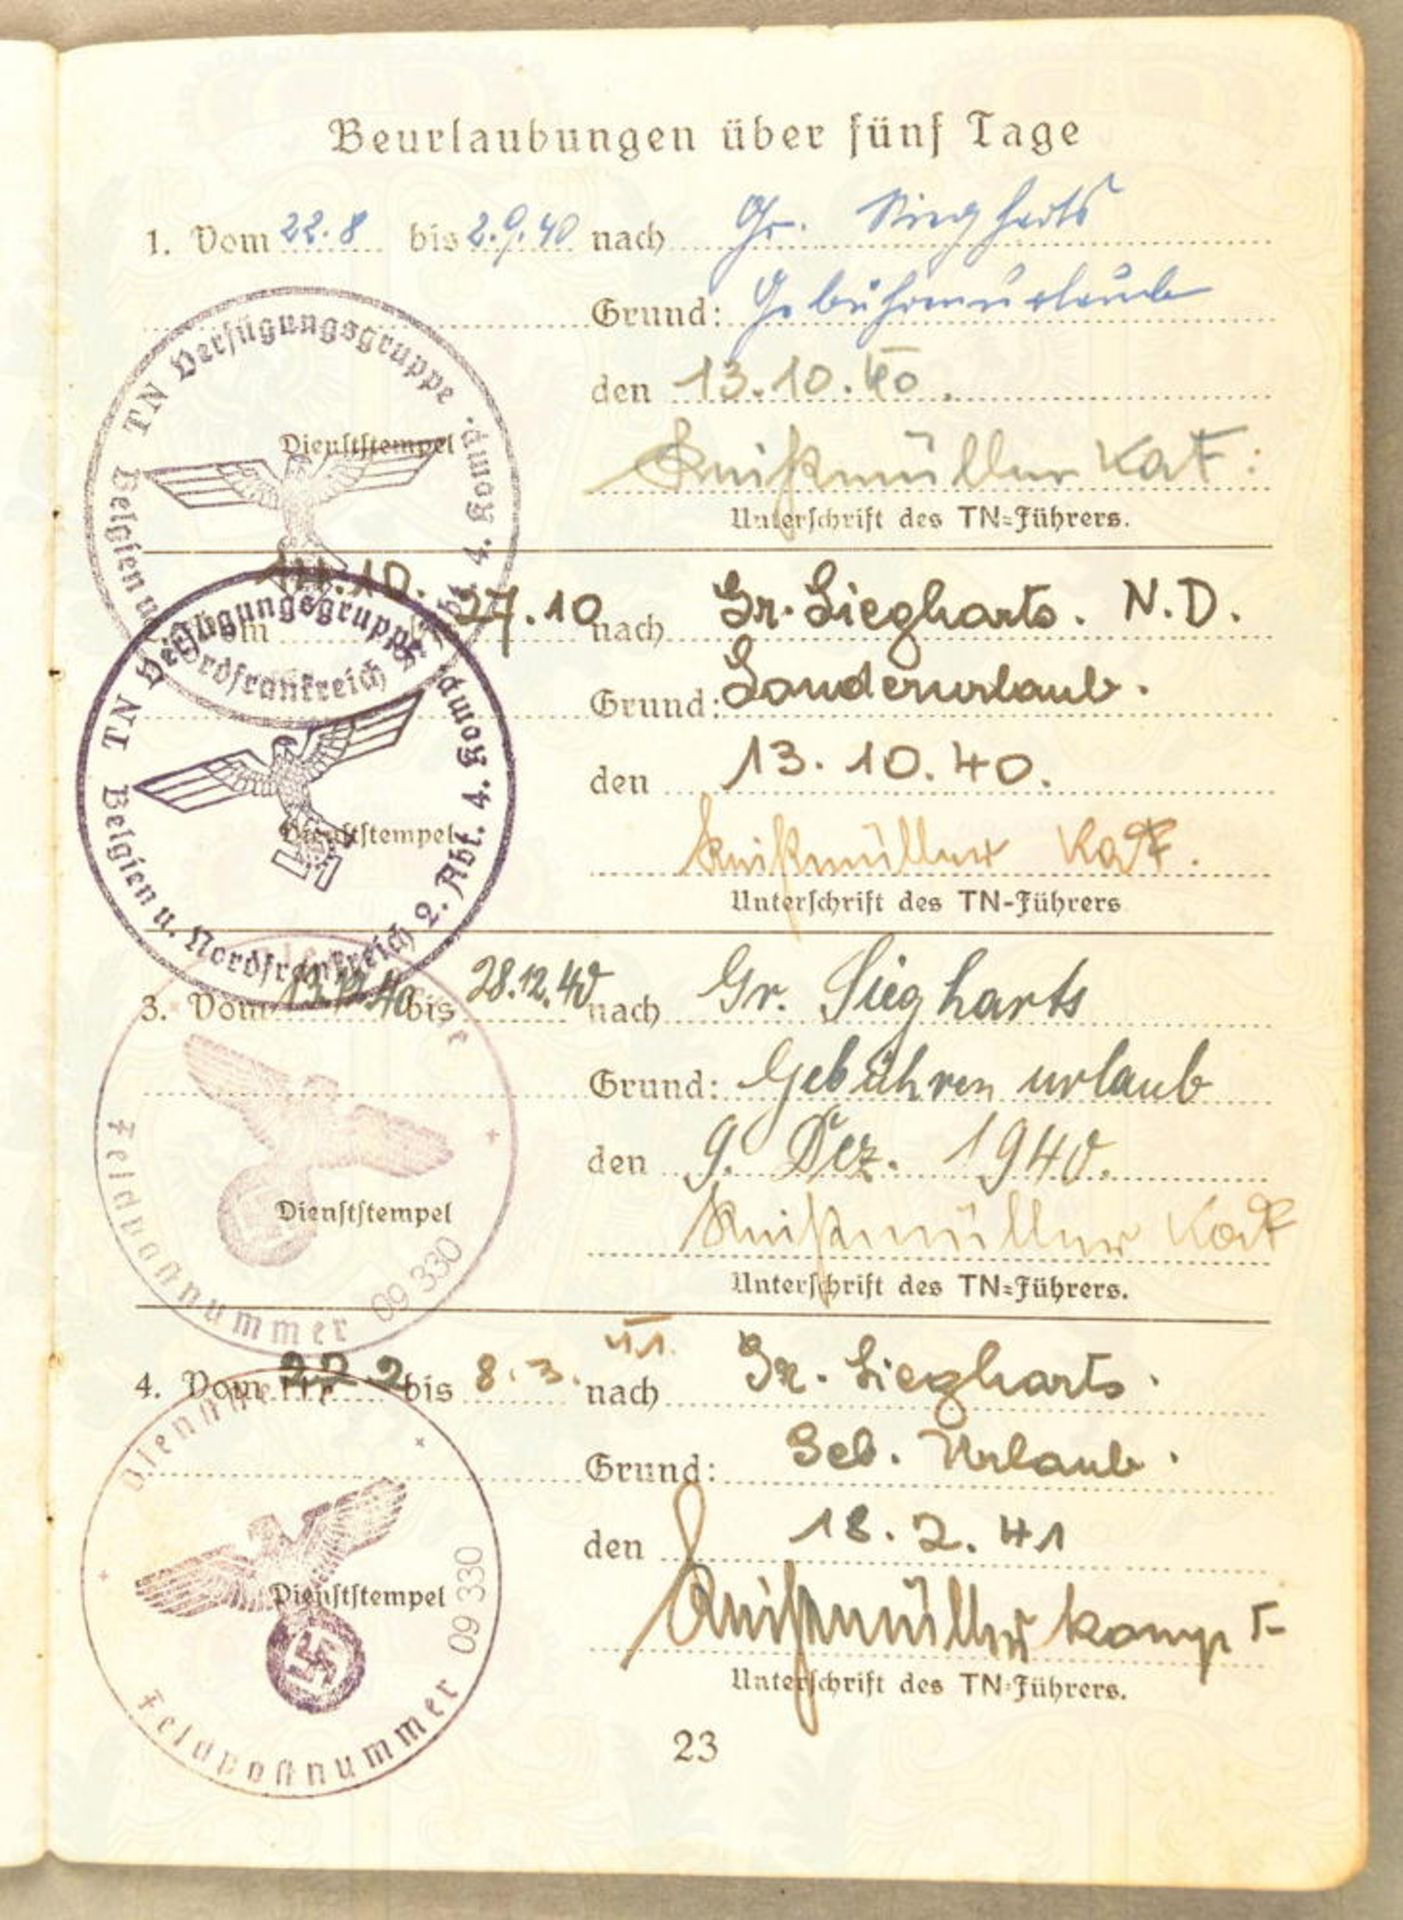 Beurlaubungen über fünf Tage
1. Vom 22.8 bis 2.9.40 nach Gr. Siegharts
Grund: Gebührenurlaub
den 13.10.40.
TN Verfügungsgruppe Belgien u. Nordfrankreich 4. Komp.
Dienststempel
Unterschrift des TN=Führers.
27.10 nach Gr. Siegharts. N.D.
Grund: Sonderurlaub.
den 13.10.40.
TN Verfügungsgruppe Belgien u. Nordfrankreich 2. Abt. 4. Komp.
Dienststempel
Unterschrift des TN-Führers
3. Vom 13.12.40 bis 28.12.40 nach Gr. Siegharts
Grund: Gebühren urlaub
den 9. Dez. 1940.
Dienststempel
Feldpostnummer 09 330
Unterschrift des TN=Führers.
4. Vom 22 2 bis 8.3. nach Gr. Siegharts.
Grund: Geb. Urlaub.
den 18.2.41
Dienststempel
Feldpostnummer 09 330
Unterschrift des TN=Führers.
23